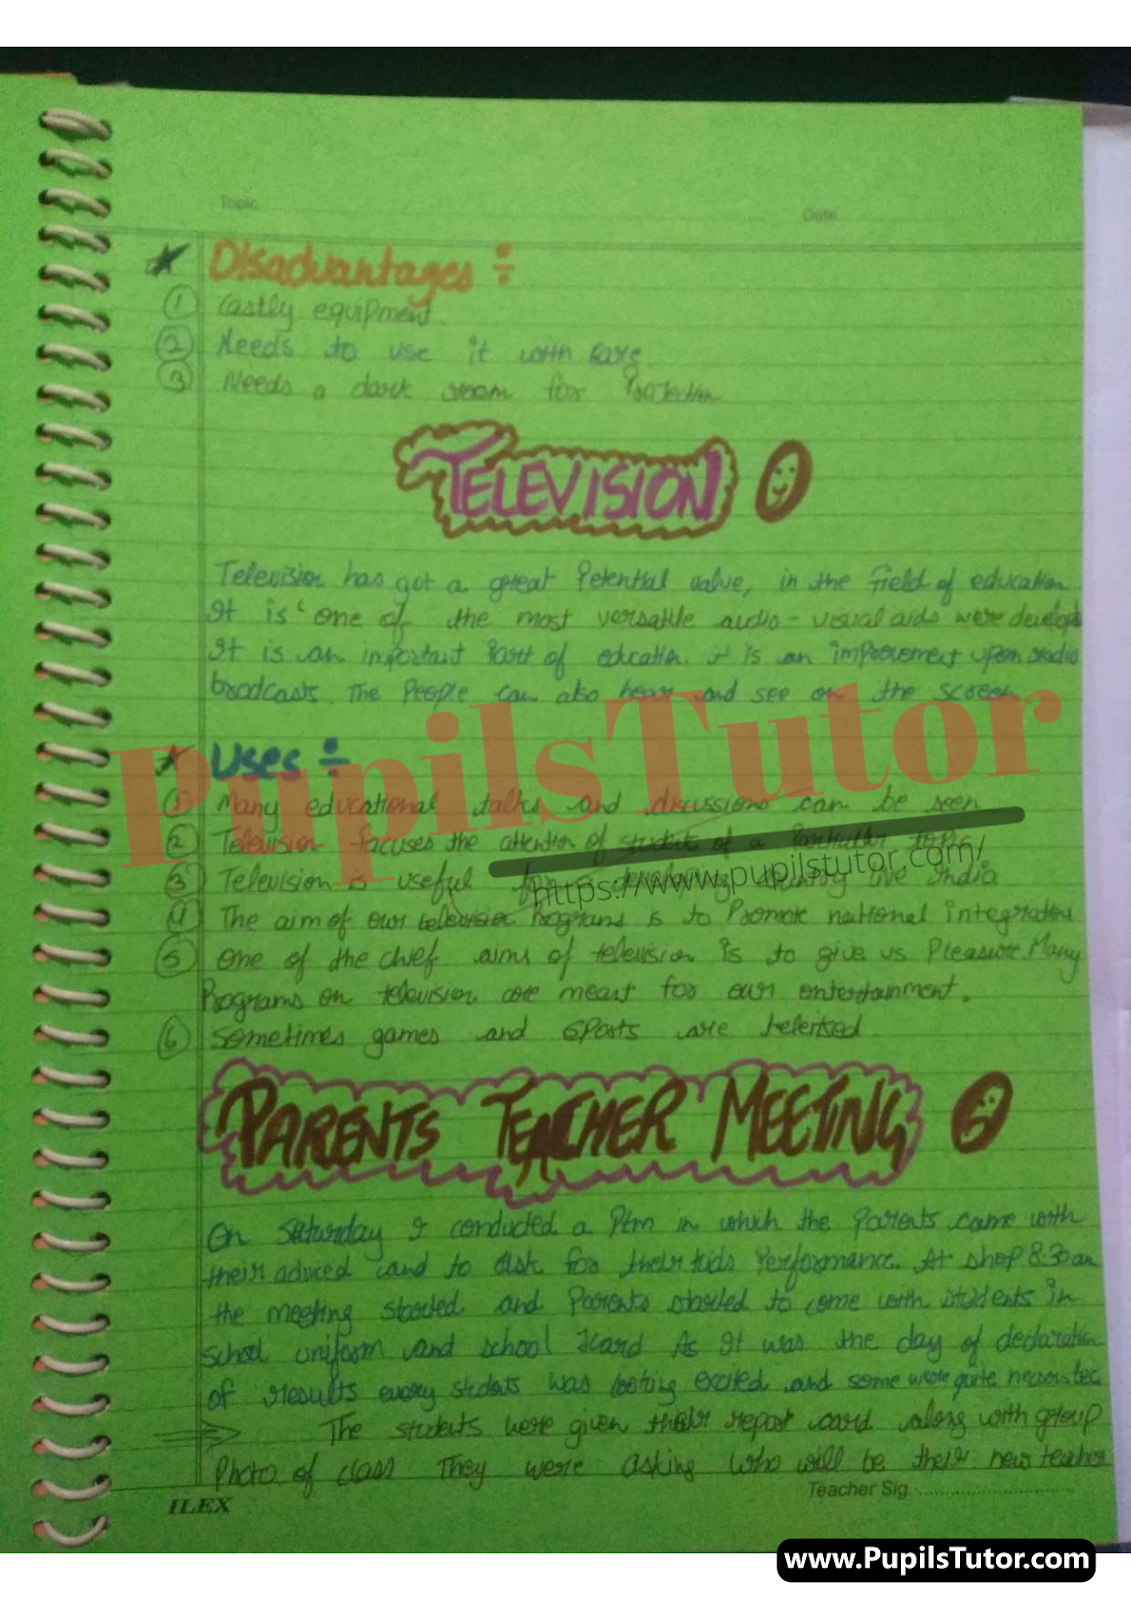 Topic
Date
Disadvantages ÷
① Costly equipment
② Needs to use it with care
③ Needs a dark room for Projection
TELEVISION
Television has got a great Potential value, in the field of education
It is one of the most versatile audio - visual aids were develop
It is an important Part of education. it is an improvement upon radio
broadcasts. The People can also hear and see on the screen
PupilsTutor
Uses ÷
① Many educational talks and discussions can be seen
② Television focuses the attention of students of a Particular topic
https://www.pupilstutor.com/
③ Television is useful for a India
④ The aim of our television Programs is to Promote national integration
⑤ One of the chief aims of television is to give us Pleasure Many
Programs on television are meant for our entertainment.
⑥ Sometimes games and SPorts are telerised
PARENTS TEACHER MEETING
On Saturday I conducted a Ptm in which the Parents came with
their and to ask for their kids Performance. At 8:30 am
the meeting started and Parents started to come with students in
school uniform and school Icard As It was the day of declaration
of results every students was looking excited and some were quite
The students were given their report card along with group
Photo of class They were asking who will be their new teacher
ILEX
Teacher Sig.
www.PupilsTutor.com